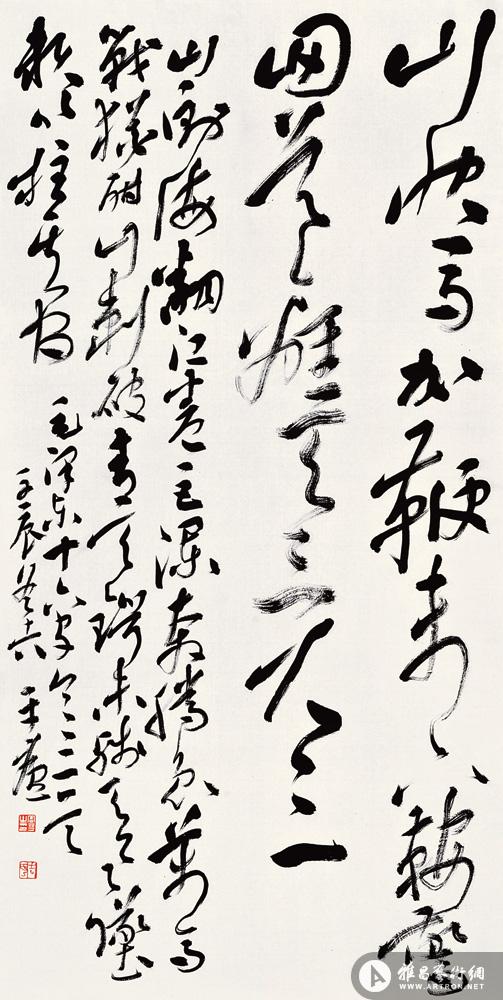 山快馬加鞭未下鞍驚
回首離天三尺三
山倒海翻江卷巨澜奔腾急萬馬
戰猶酣山刺破青天锷未残天欲墮
赖以拄其间
毛泽东十六字令三首
壬辰
雅昌藝術網
WWW.ARTRON.NET